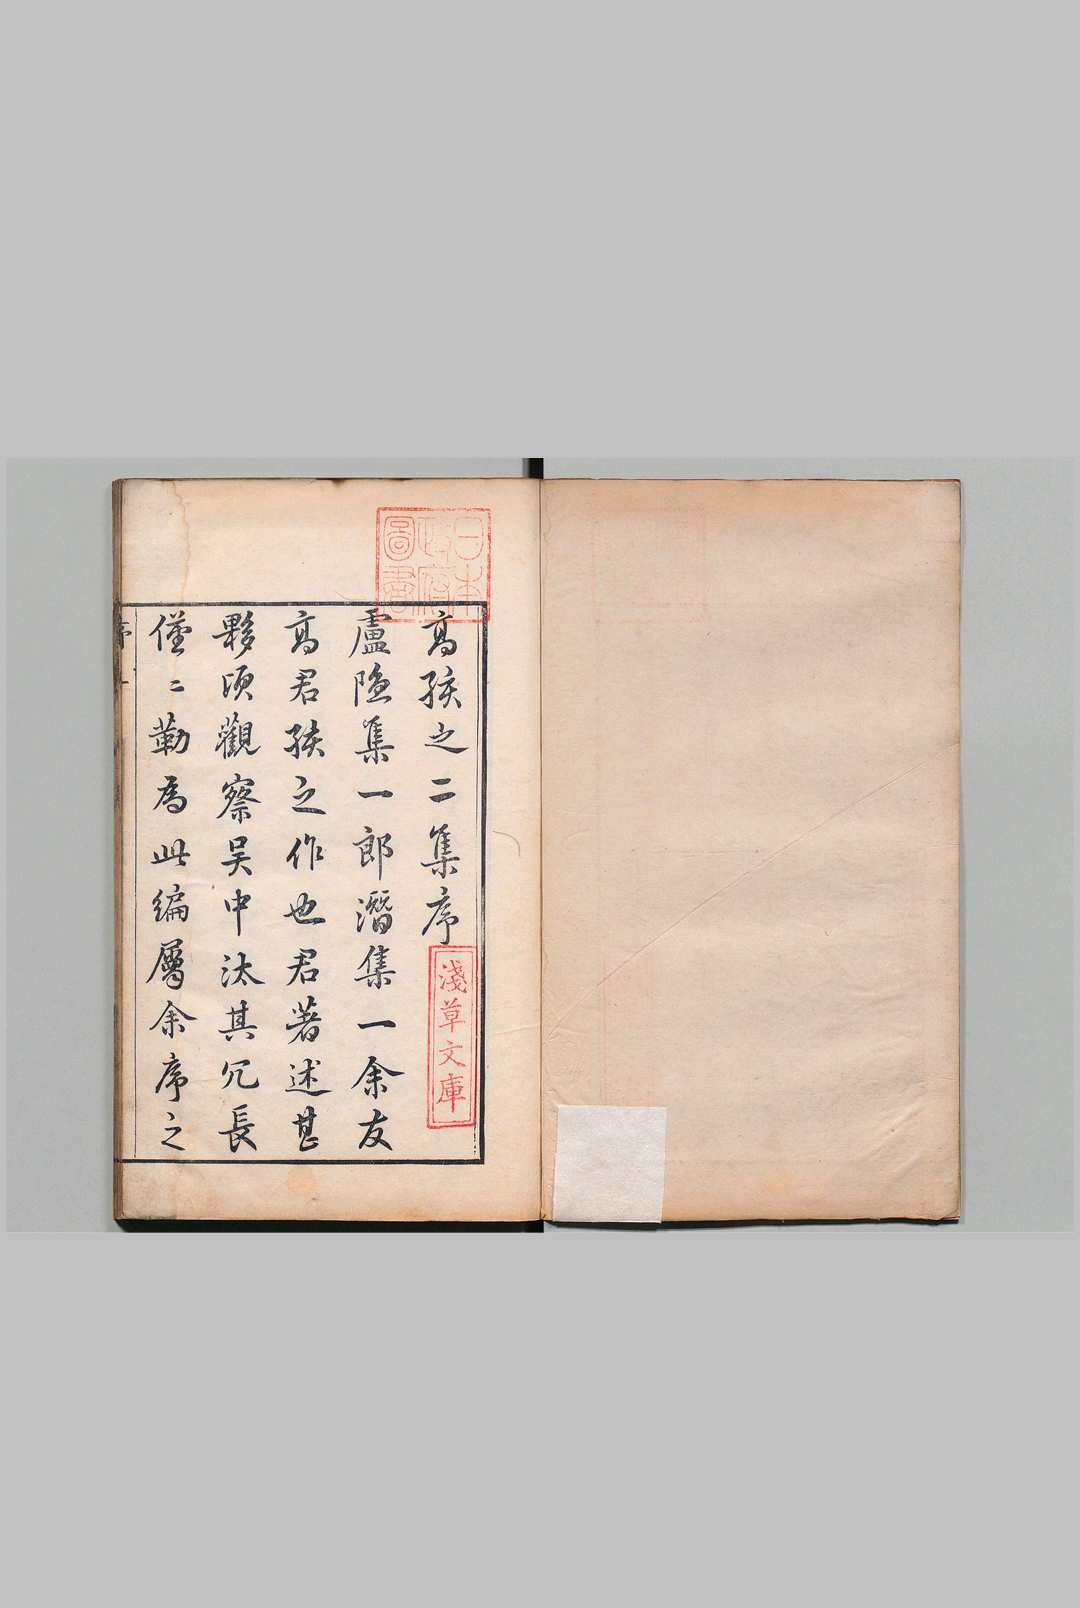 日本
政府
圖書
高孩之二集序
淺草文庫
盧隱集一郎潛集一余友
高君孩之作也君著述甚
夥頃觀察吳中汰其冗長
僅〻勒為此編屬余序之